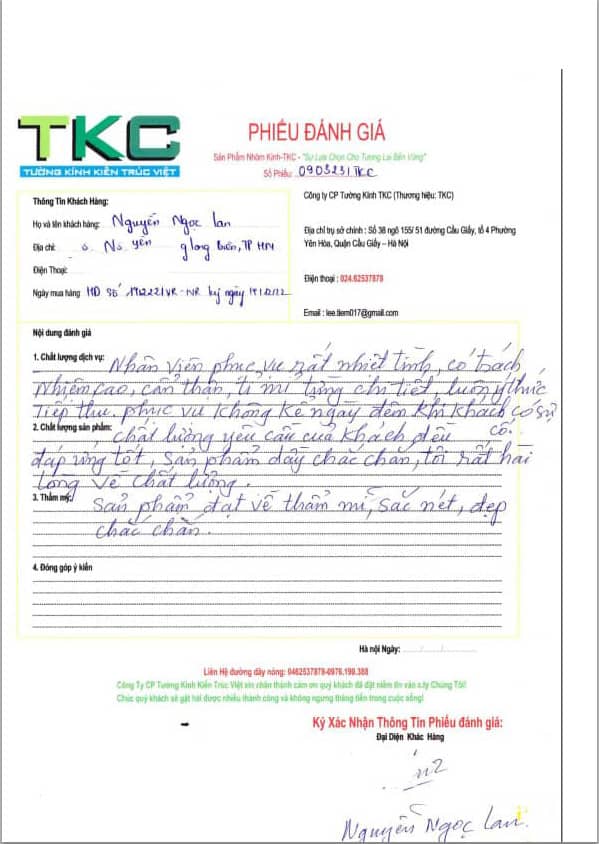 TKC
TƯỜNG KÍNH KIẾN TRÚC VIỆT
PHIẾU ĐÁNH GIÁ
Sản Phẩm Nhôm Kính-TKC - "Sự Lựa Chọn Cho Tương Lai Bền Vững"
Số Phiếu: 0903231TKC
Thông Tin Khách Hàng:
Họ và tên khách hàng: Nguyễn Ngọc Lan
Địa chỉ: Long Biên, TP HN
Điện Thoại:
Ngày mua hàng HĐ Số ký ngày
Công ty CP Tường Kính TKC (Thương hiệu: TKC)
Địa chỉ trụ sở chính : Số 38 ngõ 155/ 51 đường Cầu Giấy, tổ 4 Phường
Yên Hòa, Quận Cầu Giấy – Hà Nội
Điện thoại : 024.62537878
Email : lee.tiem017@gmail.com
Nội dung đánh giá
1. Chất lượng dịch vụ: Nhân viên phục vụ rất nhiệt tình, có trách
nhiệm cao, cẩn thận, tỉ mỉ từng chi tiết, luôn ý thức
tiếp thu. phục vụ không kể ngày đêm khi khách có sự
cố.
2. Chất lượng sản phẩm: chất lượng yêu cầu của khách đều
đáp ứng tốt, sản phẩm dầy chắc chắn, tôi rất hài
lòng về chất lượng.
3. Thẩm mỹ: Sản phẩm đạt về thẩm mĩ, sắc nét, đẹp
chắc chắn.
4. Đóng góp ý kiến
Hà nội Ngày: / /
Liên Hệ đường dây nóng: 0462537878-0976.199.388
Công Ty CP Tường Kính Kiến Trúc Việt xin nhân thành cảm ơn quý khách đã đặt niềm tin vào c.ty Chúng Tôi!
Chúc quý khách sẽ gặt hái được nhiều thành công và không ngừng thăng tiến trong cuộc sống!
Ký Xác Nhận Thông Tin Phiếu đánh giá:
Đại Diện Khác Hàng
Nguyễn Ngọc Lan